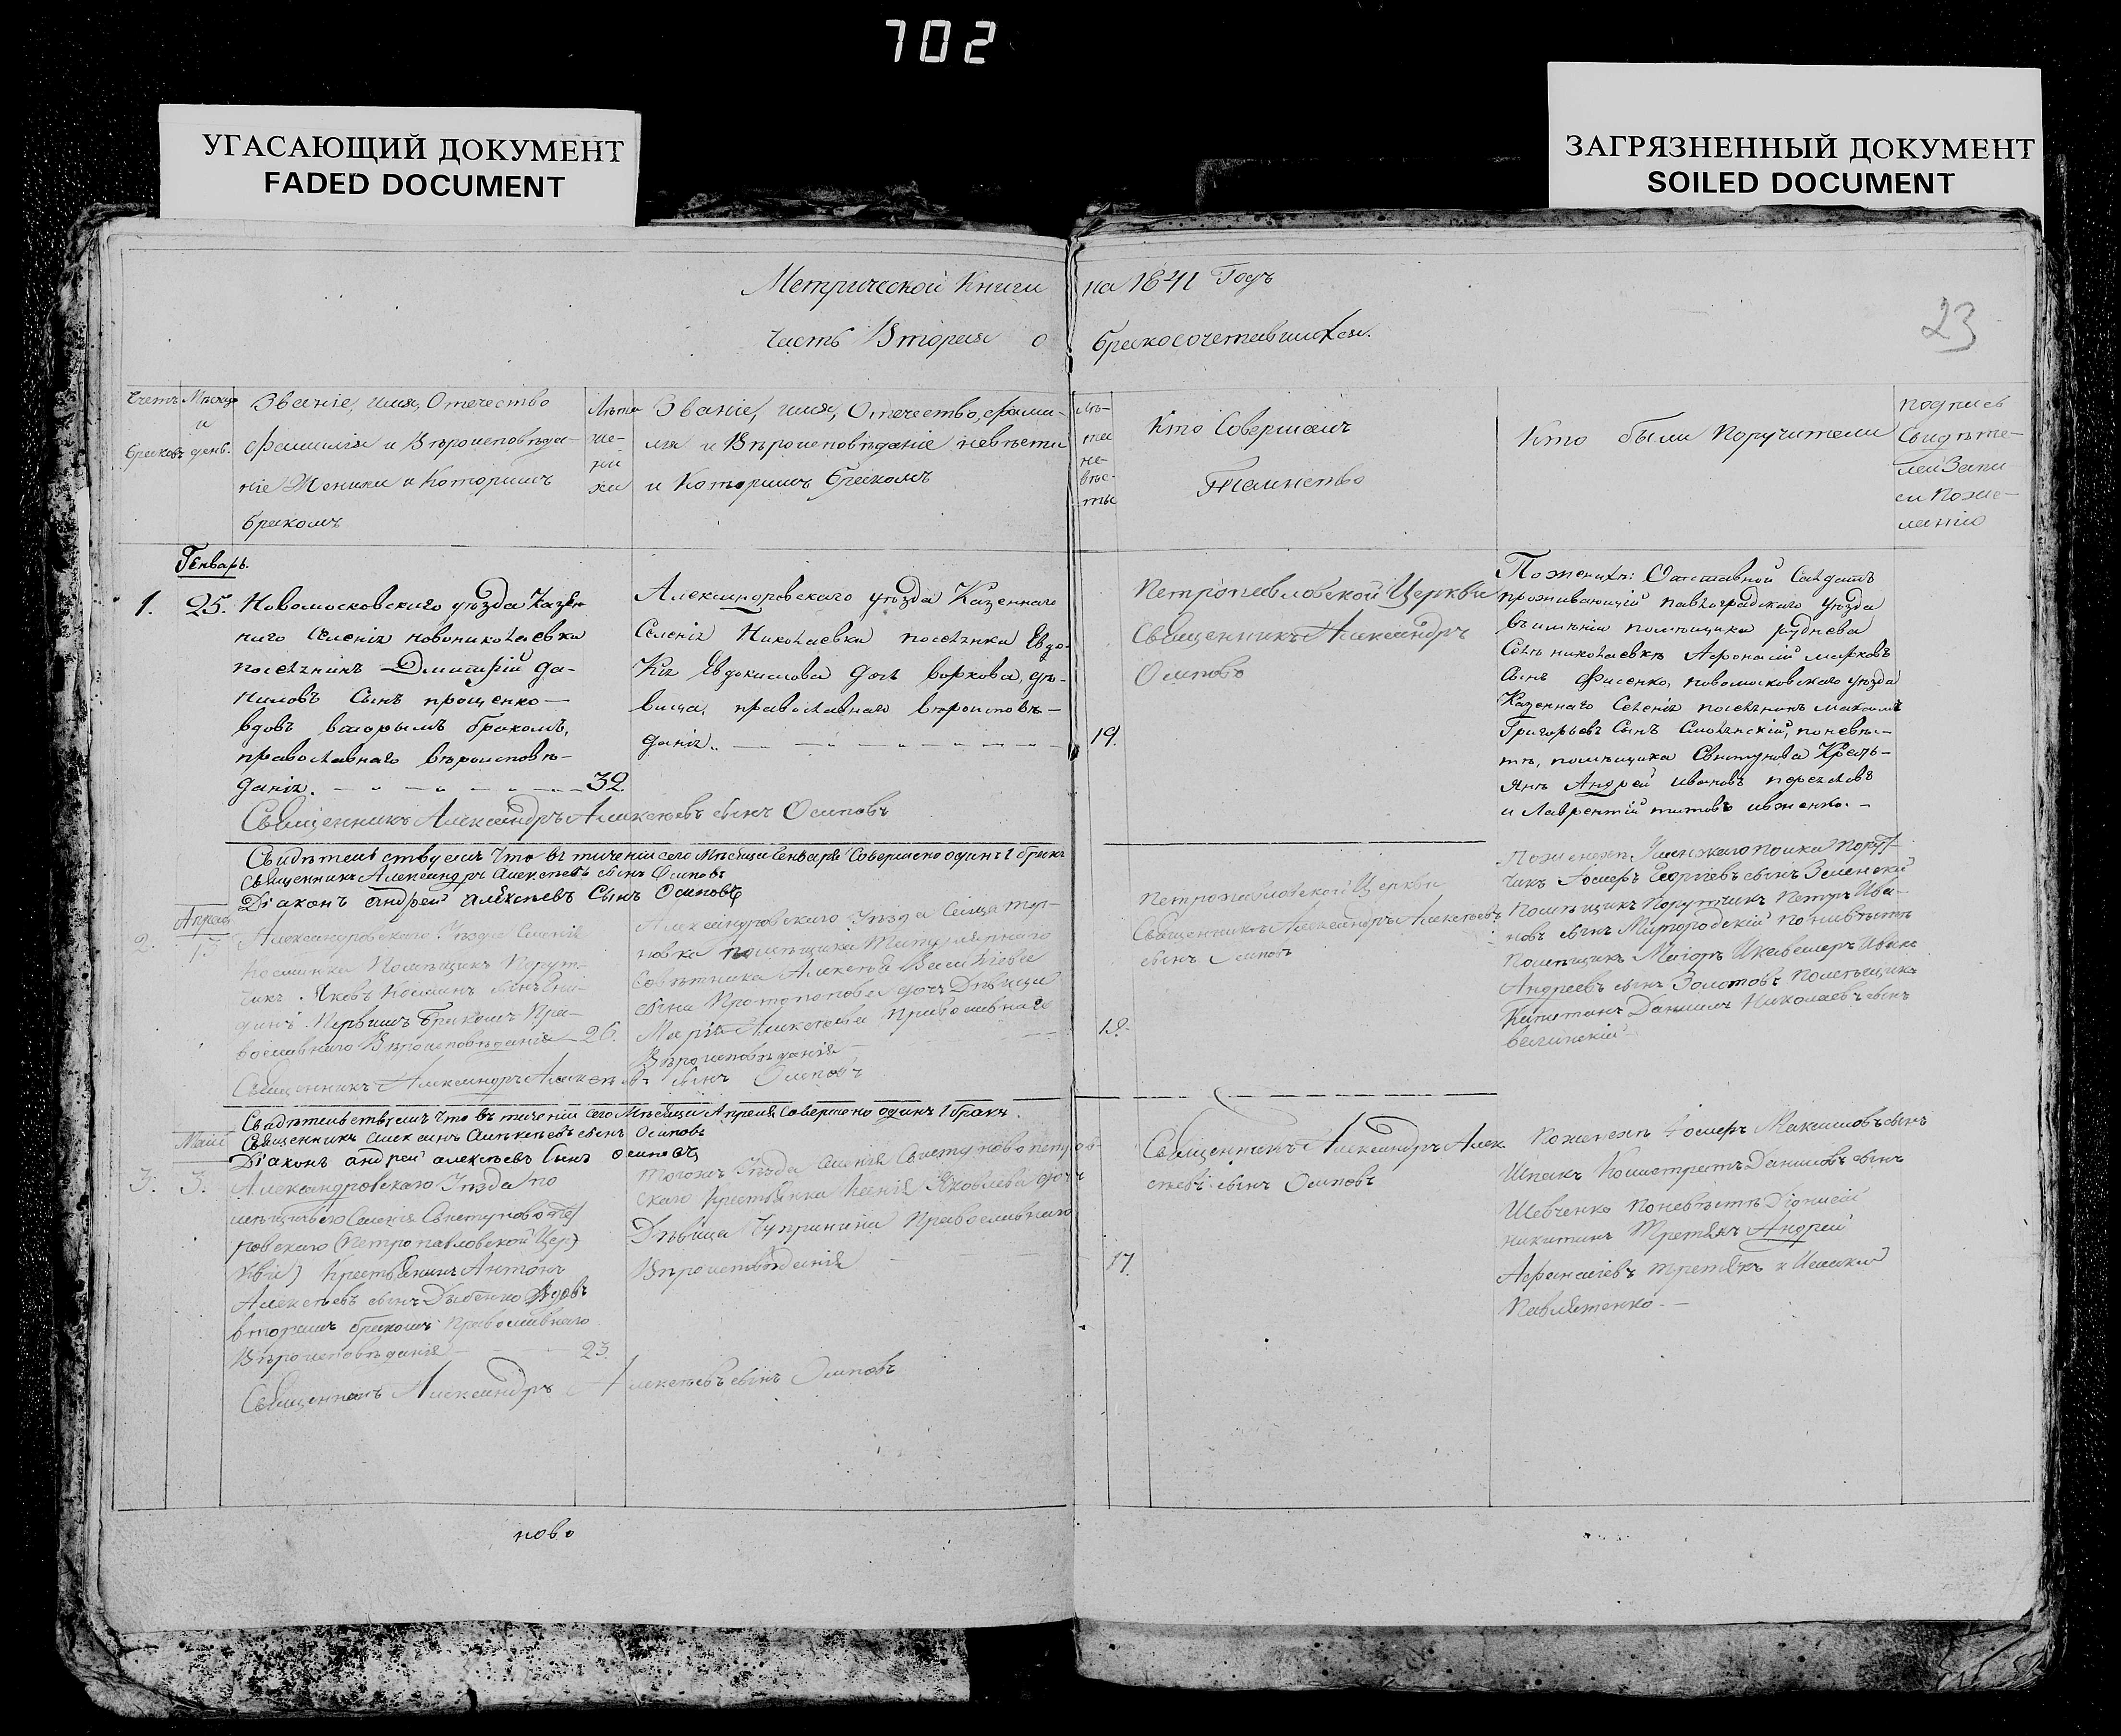 702
УГАСАЮЩИЙ ДОКУМЕНТ
FADED DOCUMENT
ЗАГРЯЗНЕННЫЙ ДОКУМЕНТ
SOILED DOCUMENT
Метрической Книги на 1841 Годъ
Часть Вторая о бракосочетавшихся.
23
Счетъ браковъ
Мѣсяцъ и день.
Званіе, имя, Отечество
Фамилія и Вѣроисповѣда-
ніе Жениха и Которимъ
бракомъ
Лѣта
же-
ни
ха
Званіе, имя, Отечество, фами-
лія и Вѣроисповѣданіе невѣсти
и Которимъ бракомъ
Лѣ-
та
не-
вѣс-
ты
Кто Совершалъ
Таинство
Кто были Поручители
подпись
Свидѣте-
лей Запи
си поже-
ланію
Генварь.
1. 25. Новомосковскаго уѣзда Казен
наго Селенія Новониколаевки
поселянинъ Дмитрій Да-
ниловъ Сынъ прощенко —
вдовъ вторымъ бракомъ,
православнаго вѣроисповѣ-
данія. 32.
Александровскаго уѣзда Казеннаго
Селенія Николаевки поселянки Евдо-
Кія Евдокимова дочь воркова, дѣ-
вица, православнаго вѣроисповѣ-
данія.
19.
Петропавловской Церкви
Священникъ Александръ
Осиповъ
По женихѣ: Отставной Салдатъ
проживающій павлоградскаго уѣзда
въ имѣніи помѣщика руднева
Селѣ николаевкѣ Афонасій марковъ
Сынъ Фисенко, новомосковскаго уѣзда
Казеннаго Селенія поселянинъ максимъ
Григорьевъ Сынъ Смолянскій, по невѣс-
тѣ, помѣщика Свистунова Кресть-
янъ Андрей ивановъ
и Лаврентій титовъ
Священникъ Александръ Алексѣевъ сынъ Осиповъ
Свидѣтельствуемъ что въ теченіи сего Мѣсяца Генваря Совершено одинъ 1 бракъ
Священникъ Александръ Алексѣевъ сынъ Осиповъ
Діаконъ андрей алексѣевъ Сынъ Осиповъ
Апрель
2. 17. Александровскаго Уѣзда Селенія
Помѣщикъ Порут-
чикъ Яковъ
Первимъ Бракомъ Пра-
вославнаго Вѣроисповѣданія 26.
Александровскаго Уѣзда Сельца Тер-
новка помѣщика Титулярнаго
Совѣтника Алексѣя Васильева
сына Протопопова дочь Дѣвица
Марія Алексѣева Православнаго
Вѣроисповѣданія
19.
Петропавловской Церкви
Священникъ Александръ Алексѣевъ
сынъ Осиповъ
Георгіевъ сынъ Зеленскій
Помѣщикъ Порутчикъ Петръ Ива-
новъ сынъ Миргородскій по невѣстѣ
Помѣщикъ Маіоръ Икавалеръ Иванъ
Андреевъ сынъ Золотовъ Помѣщикъ
Капитанъ Даниилъ Николаевъ сынъ
Священникъ Александръ Алексѣевъ сынъ Осиповъ
Свидѣтельствуемъ что въ теченіи сего Мѣсяца Апреля Совершено одинъ 1 бракъ.
Священникъ Алексѣевъ сынъ Осиповъ
Діаконъ андрей алексѣевъ Сынъ осиповъ
Маій
3. 3. Александровскаго Уѣзда по
мѣщичьего Селенія Свистуново Пет
ровскаго (Петропавловской Цер)
кви) Крестьянинъ Антонъ
Алексѣевъ сынъ Дыбенко Вдовъ
вторимъ бракомъ Православнаго
Вѣроисповѣданія 23.
Тогожъ Уѣзда Селенія Свистуново петров
скаго Крестьянка Ксенія Яковлева дочь
Дѣвица Чупринина Православнаго
Вѣроисповѣданія
17.
Священникъ Александръ Алек
сѣевъ сынъ Осиповъ
По женихѣ Максимовъ сынъ
Шпакъ Данииловъ сынъ
Шевченко По невѣстѣ Діонисій
никитинъ Третякъ Андрей
Афанасіевъ третякъ и
Павлятенко. —
Священникъ Александръ Алексѣевъ сынъ Осиповъ
ново